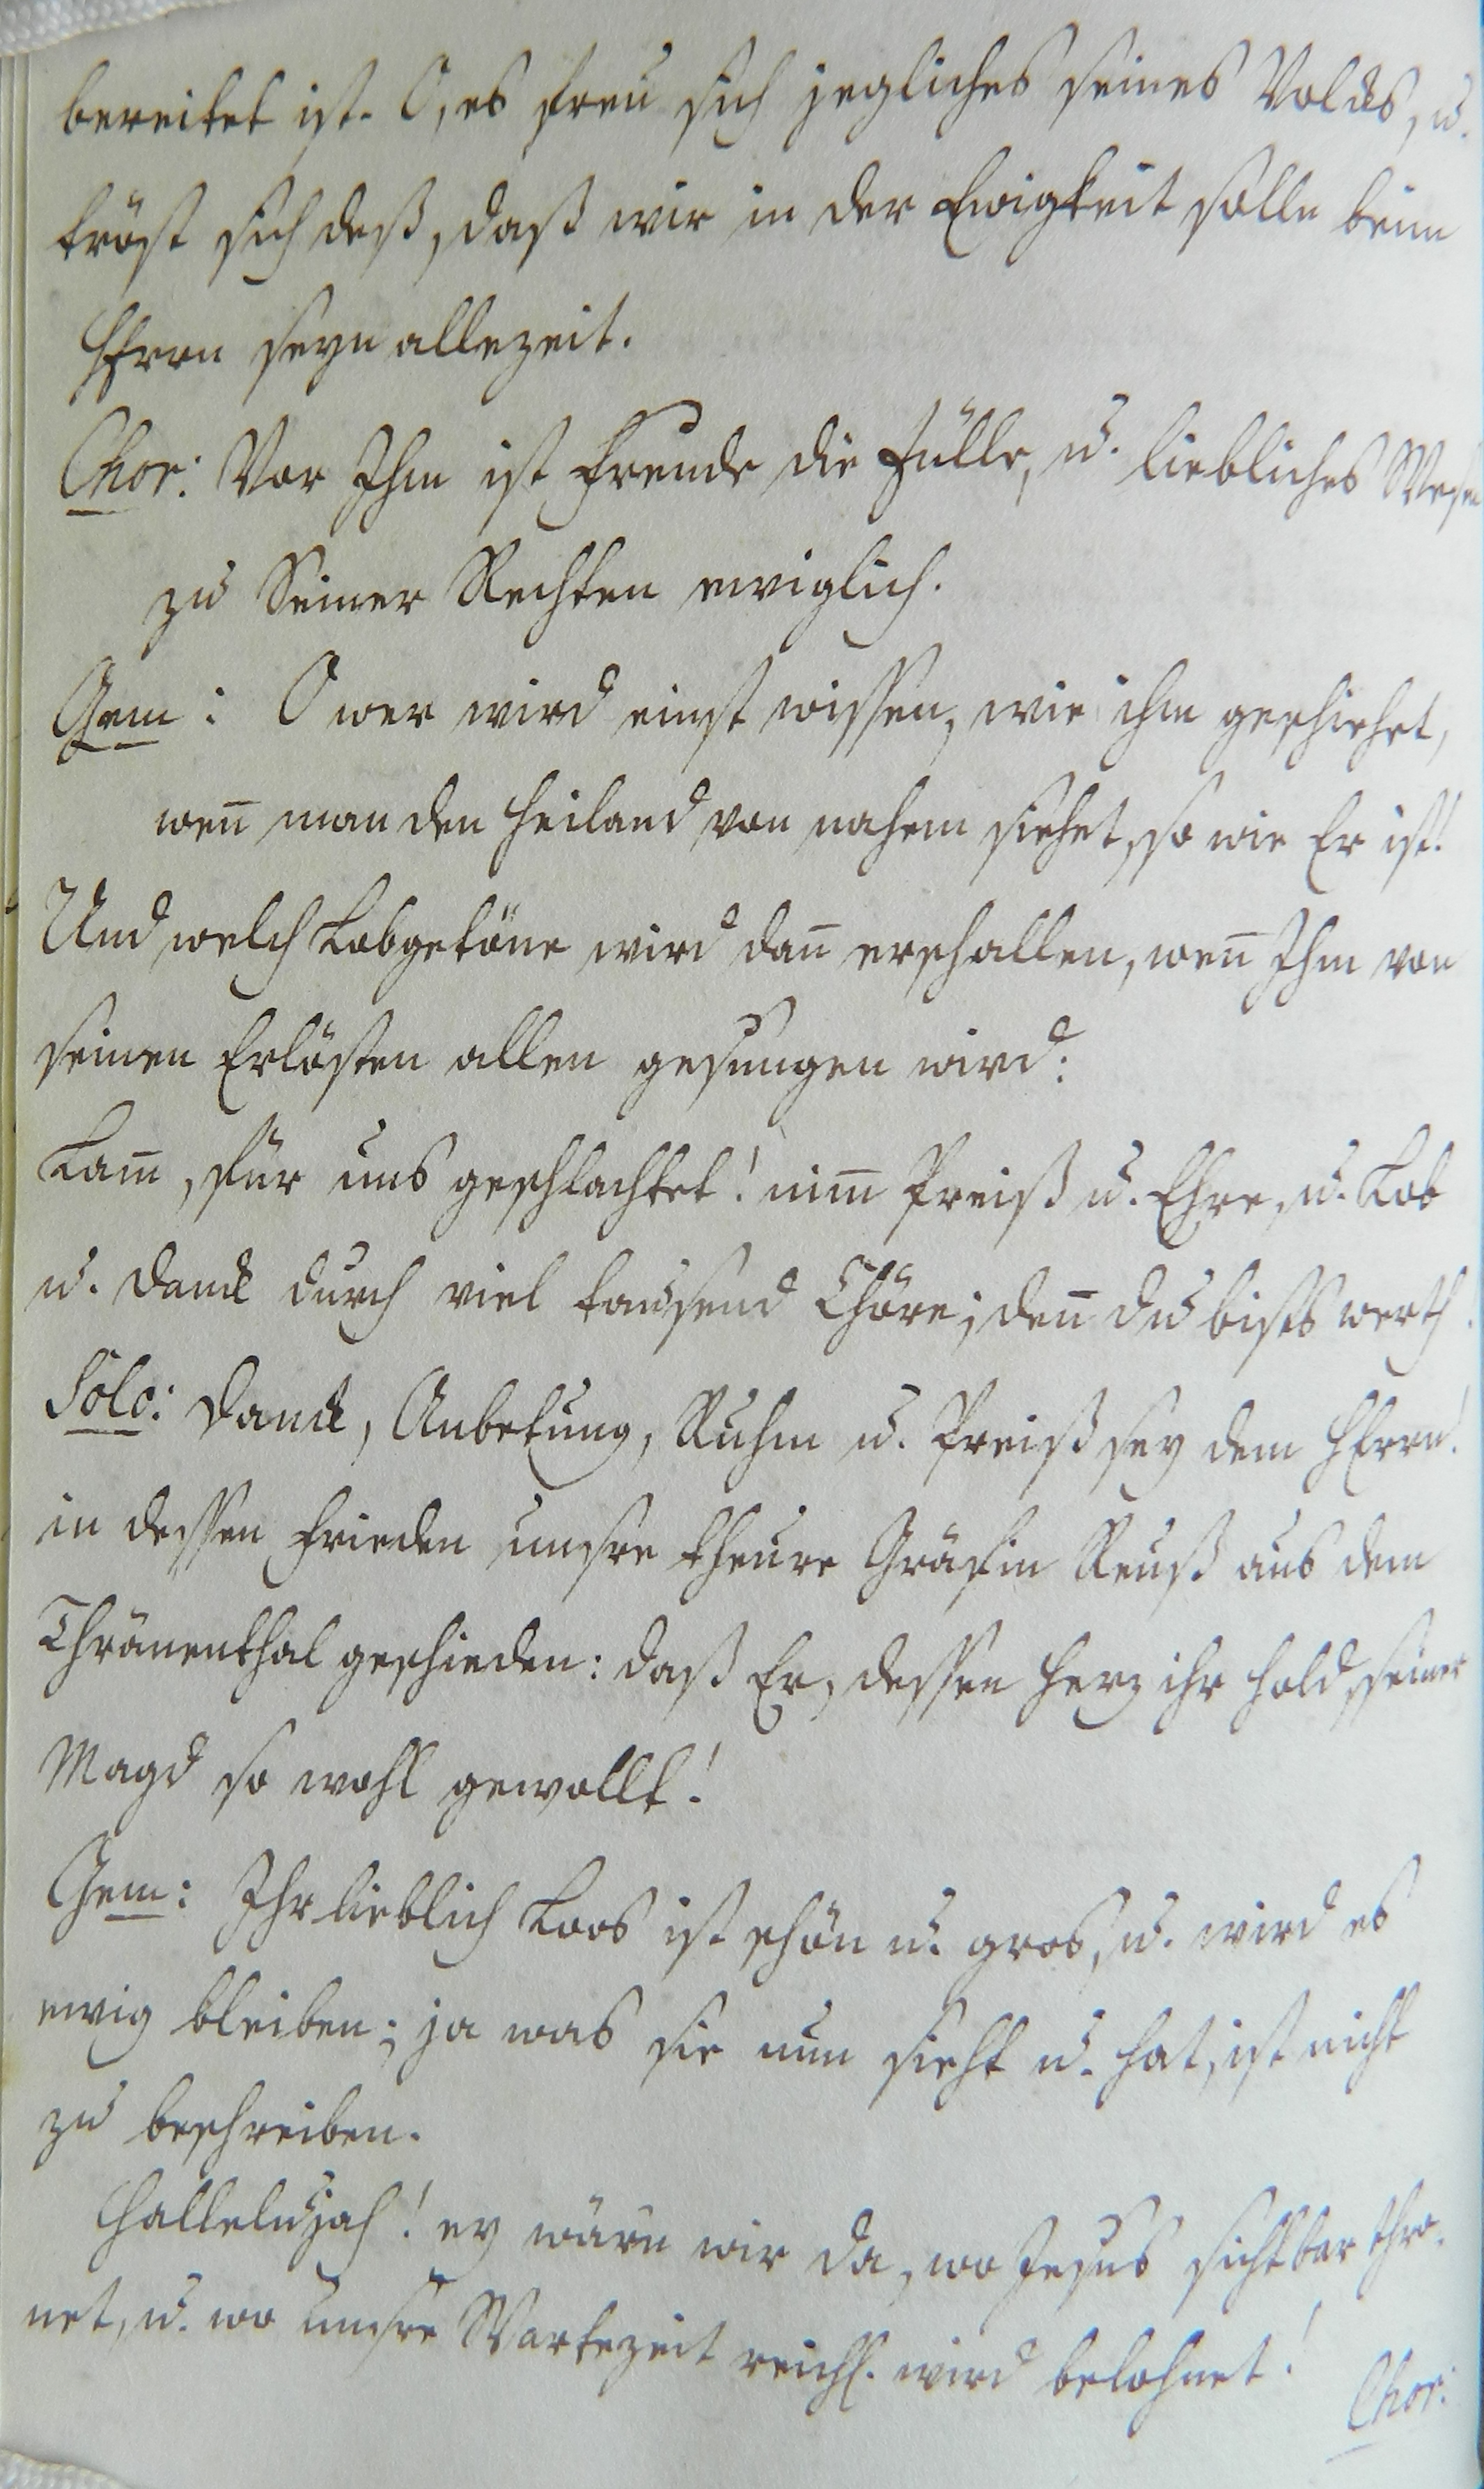 bereitet ist. O, es freu sich jegliches seines Volcks, u.
tröst sich deß, daß wir in der Ewigkeit solln beim
HErrn seyn allezeit.
Chor: Vor Ihm ist Freude die Fülle, u. liebliches Wesen
zu Seiner Rechten ewiglich.
Gem: O wer wird einst wissen, wie ihm geschiehet,
weñ man den Heiland von nahem siehet, so wie Er ist!
Und welch Lobgetöne wird dañ erschallen, weñ Ihm von
seinen Erlösten allen gesungen wird:
Lam̅, für uns geschlachtet! nim̅ Preiß u. Ehre, u. Lob
u. Danck durch viel tausend Chöre; deñ du bists werth.
Solo: Danck, Anbetung, Ruhm u. Preiß sey dem HErrn!
in dessen Frieden unsre theure Gräfin Reuß aus dem
Thränenthal geschieden: daß Er, dessen Herz ihr hold, seiner
Magd so wohl gewollt!
Gem: Ihr lieblich Loos ist schön u. gros, u. wird es
ewig bleiben; ja was sie nun sieht u. hat, ist nicht
zu beschreiben.
Hallelujah! ey wärn wir da, wo Jesus sichtbar thro-
net, u. wo unsre Wartezeit reichl. wird belohnet!
Chor: